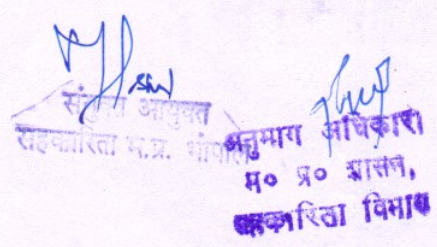 संयुक्त आयुक्त
सहकारिता म.प्र. भोपाल
अनुभाग अधिकारी
म० प्र० शासन,
सहकारिता विभाग